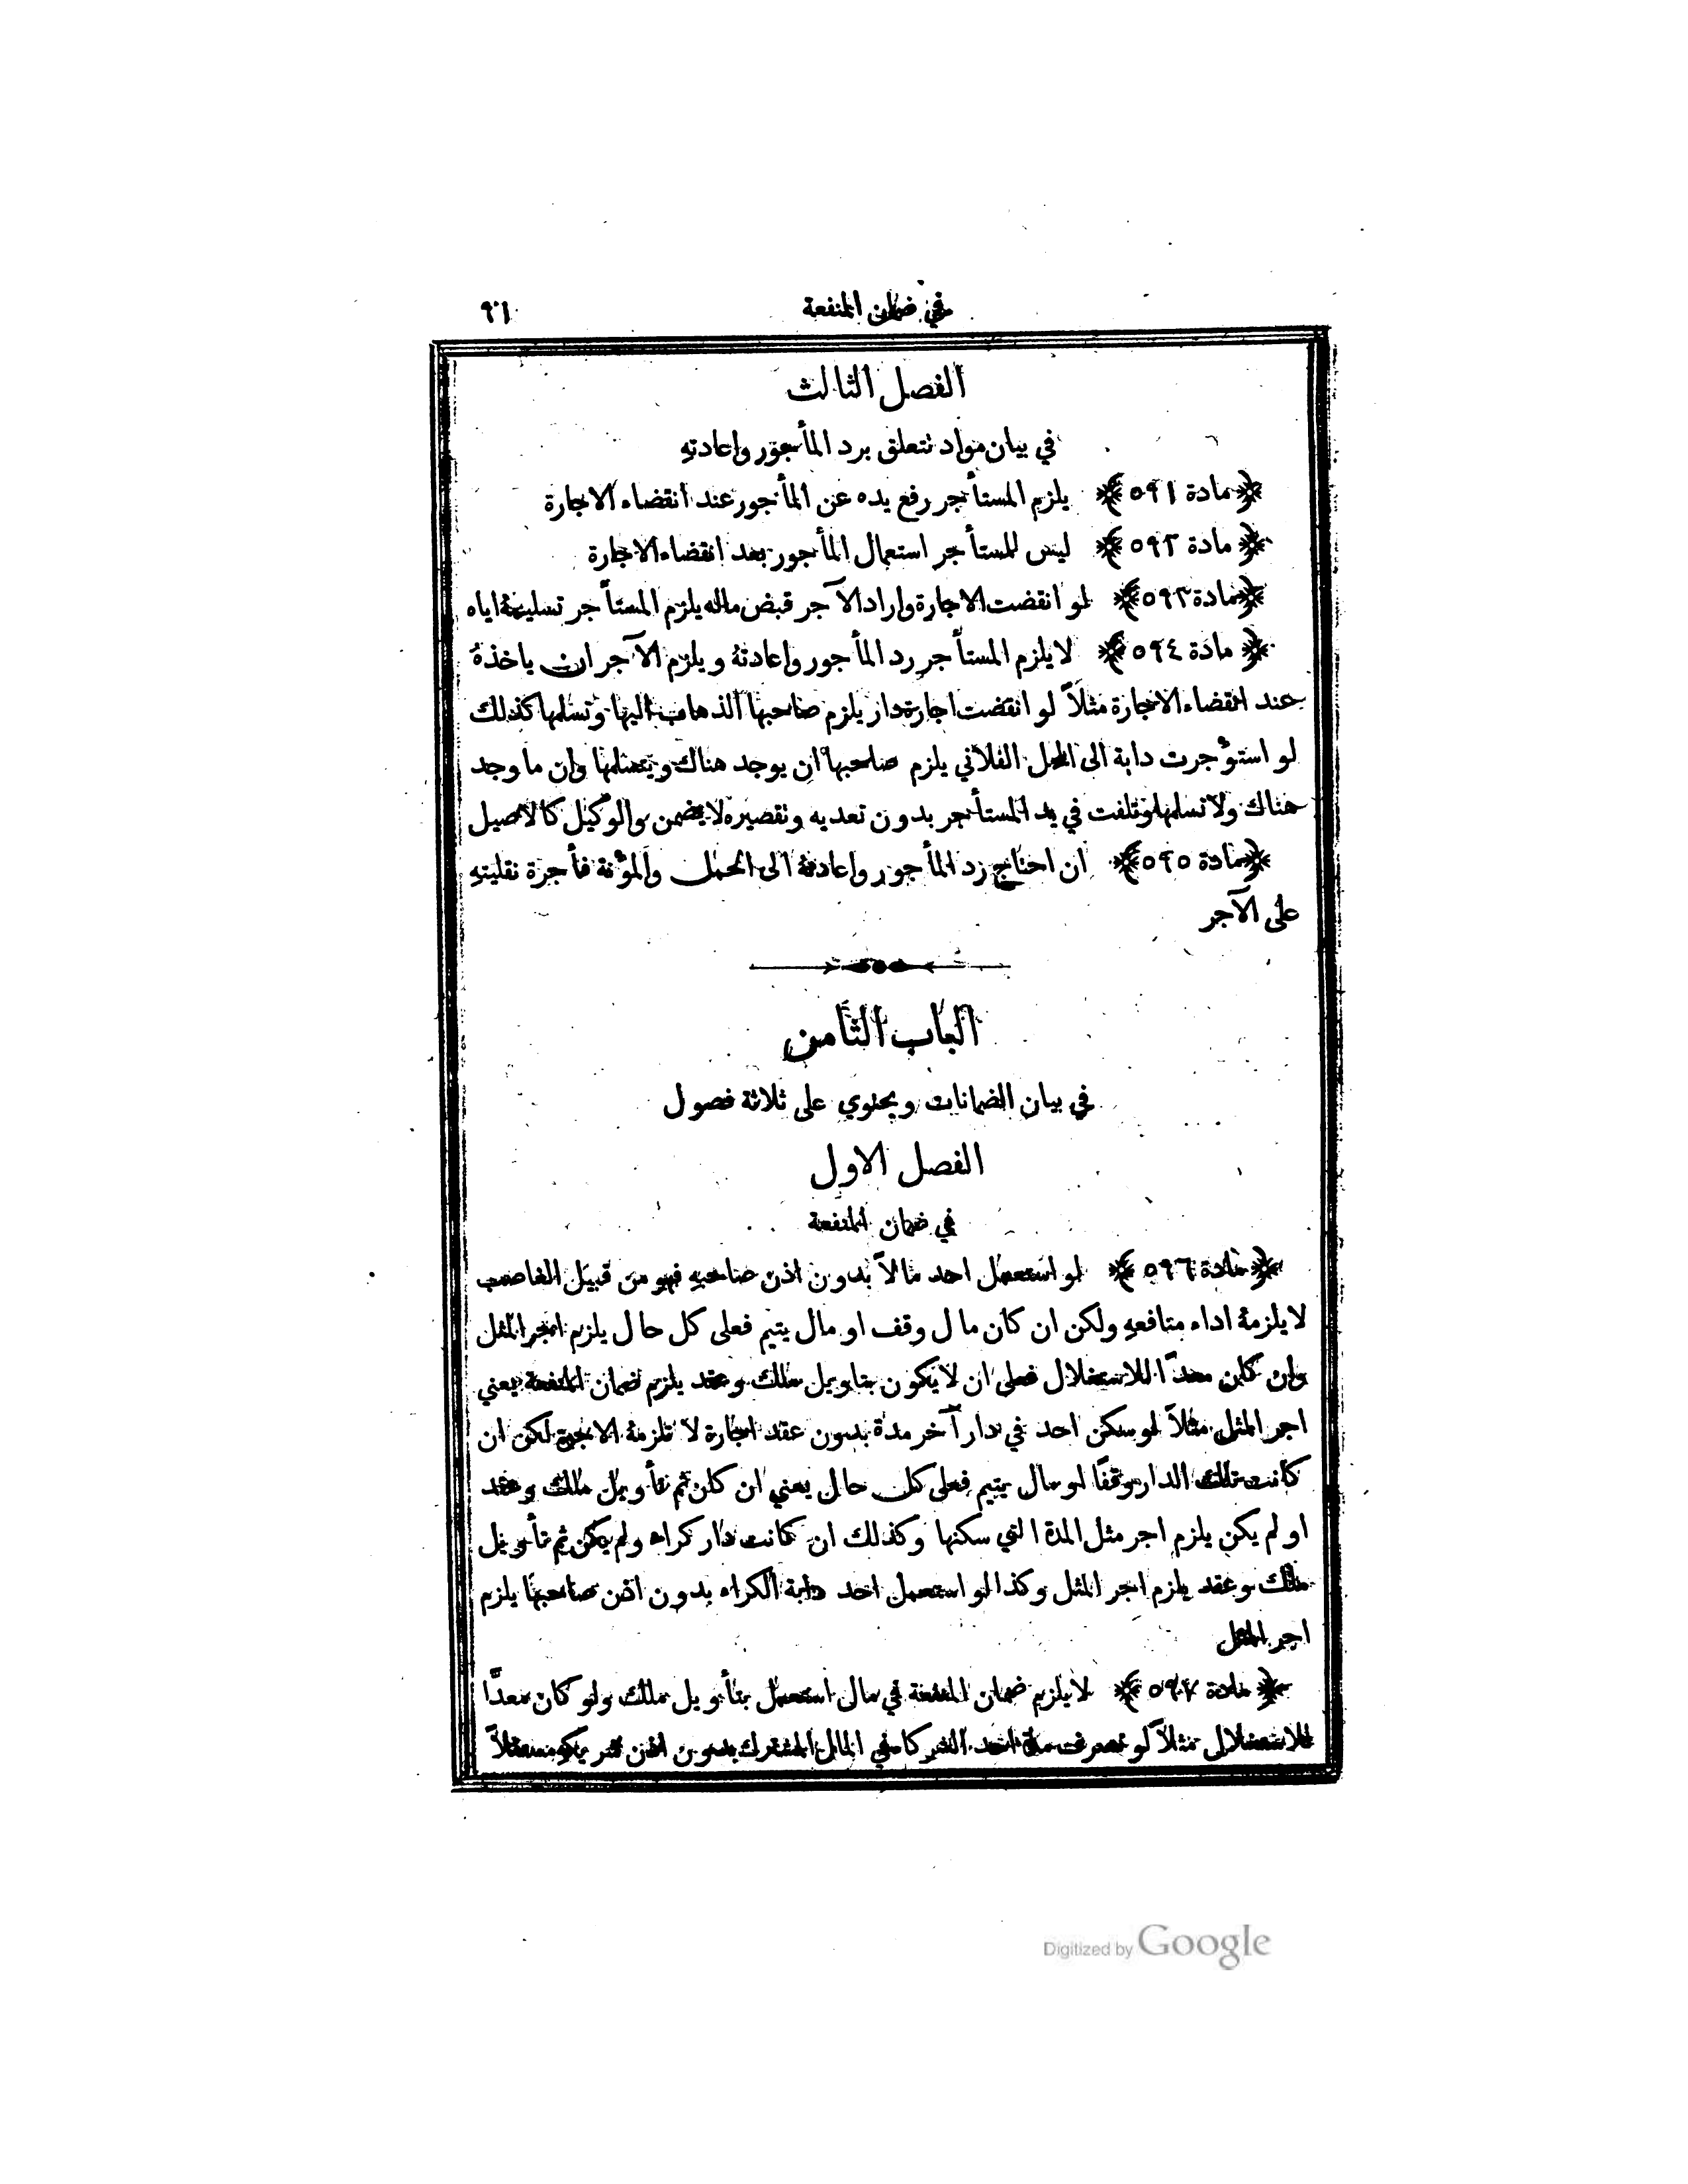 في ضمان المنفعة
٩١
الفصل الثالث
في بيان مواد تتعلق برد المأجور واعادتهِ
﴿ مادة ٥٩١ ﴾ يلزم المستأجر رفع يده عن المأجور عند انقضاء الاجارة
﴿ مادة ٥٩٢ ﴾ ليس للمستأجر استعمال المأجور بعد انقضاء الاجارة
﴿ مادة ٥٩٣ ﴾ لو انقضت الاجارة واراد الآجر قبض ماله يلزم المستأجر تسليمهُ اياه
﴿ مادة ٥٩٤ ﴾ لا يلزم المستأجر رد المأجور واعادتهُ ويلزم الآجر ان ياخذهُ
عند انقضاء الاجارة مثلاً لو انقضت اجارة دار يلزم صاحبها الذهاب اليها وتسلمها كذلك
لو استؤجرت دابة الى المحل الفلاني يلزم صاحبها ان يوجد هناك ويتسلمها وان ما وجد
هناك ولا تسلمها وتلفت في يد المستأجر بدون تعديه وتقصيره لا يضمن والوكيل كالاصيل
﴿ مادة ٥٩٥ ﴾ ان احتاج رد المأجور واعادتهُ الى الحمل والمؤنة فأجرة نقليتهِ
على الآجر
الباب الثامن
في بيان الضمانات ويحتوي على ثلاثة فصول
الفصل الاول
في ضمان المنفعة
﴿ مادة ٥٩٦ ﴾ لو استعمل احد مالاً بدون اذن صاحبهِ فهو من قبيل الغاصب
لا يلزمهُ اداء منافعهِ ولكن ان كان مال وقف او مال يتيم فعلى كل حال يلزم اجر المثل
وان كان معدًّا للاستغلال فعلى ان لا يكون بتاويل ملك وعقد يلزم ضمان المنفعة يعني
اجر المثل مثلاً لو سكن احد في دار آخر مدة بدون عقد اجارة لا تلزمهُ الاجرة لكن ان
كانت تلك الدار وقفًا او مال يتيم فعلى كل حال يعني ان كان ثم تأويل ملك وعقد
او لم يكن يلزم اجر مثل المدة التي سكنها وكذلك ان كانت دار كراء ولم يكن ثم تأويل
ملك وعقد يلزم اجر المثل وكذا لو استعمل احد دابة الكراء بدون اذن صاحبها يلزم
اجر المثل
﴿ مادة ٥٩٧ ﴾ لا يلزم ضمان المنفعة في مال استعمل بتأويل ملك ولو كان معدًّا
للاستغلال مثلاً لو تصرف مدة احد الشركاء في المال المشترك بدون اذن شريكه مستقلاً
Digitized by Google